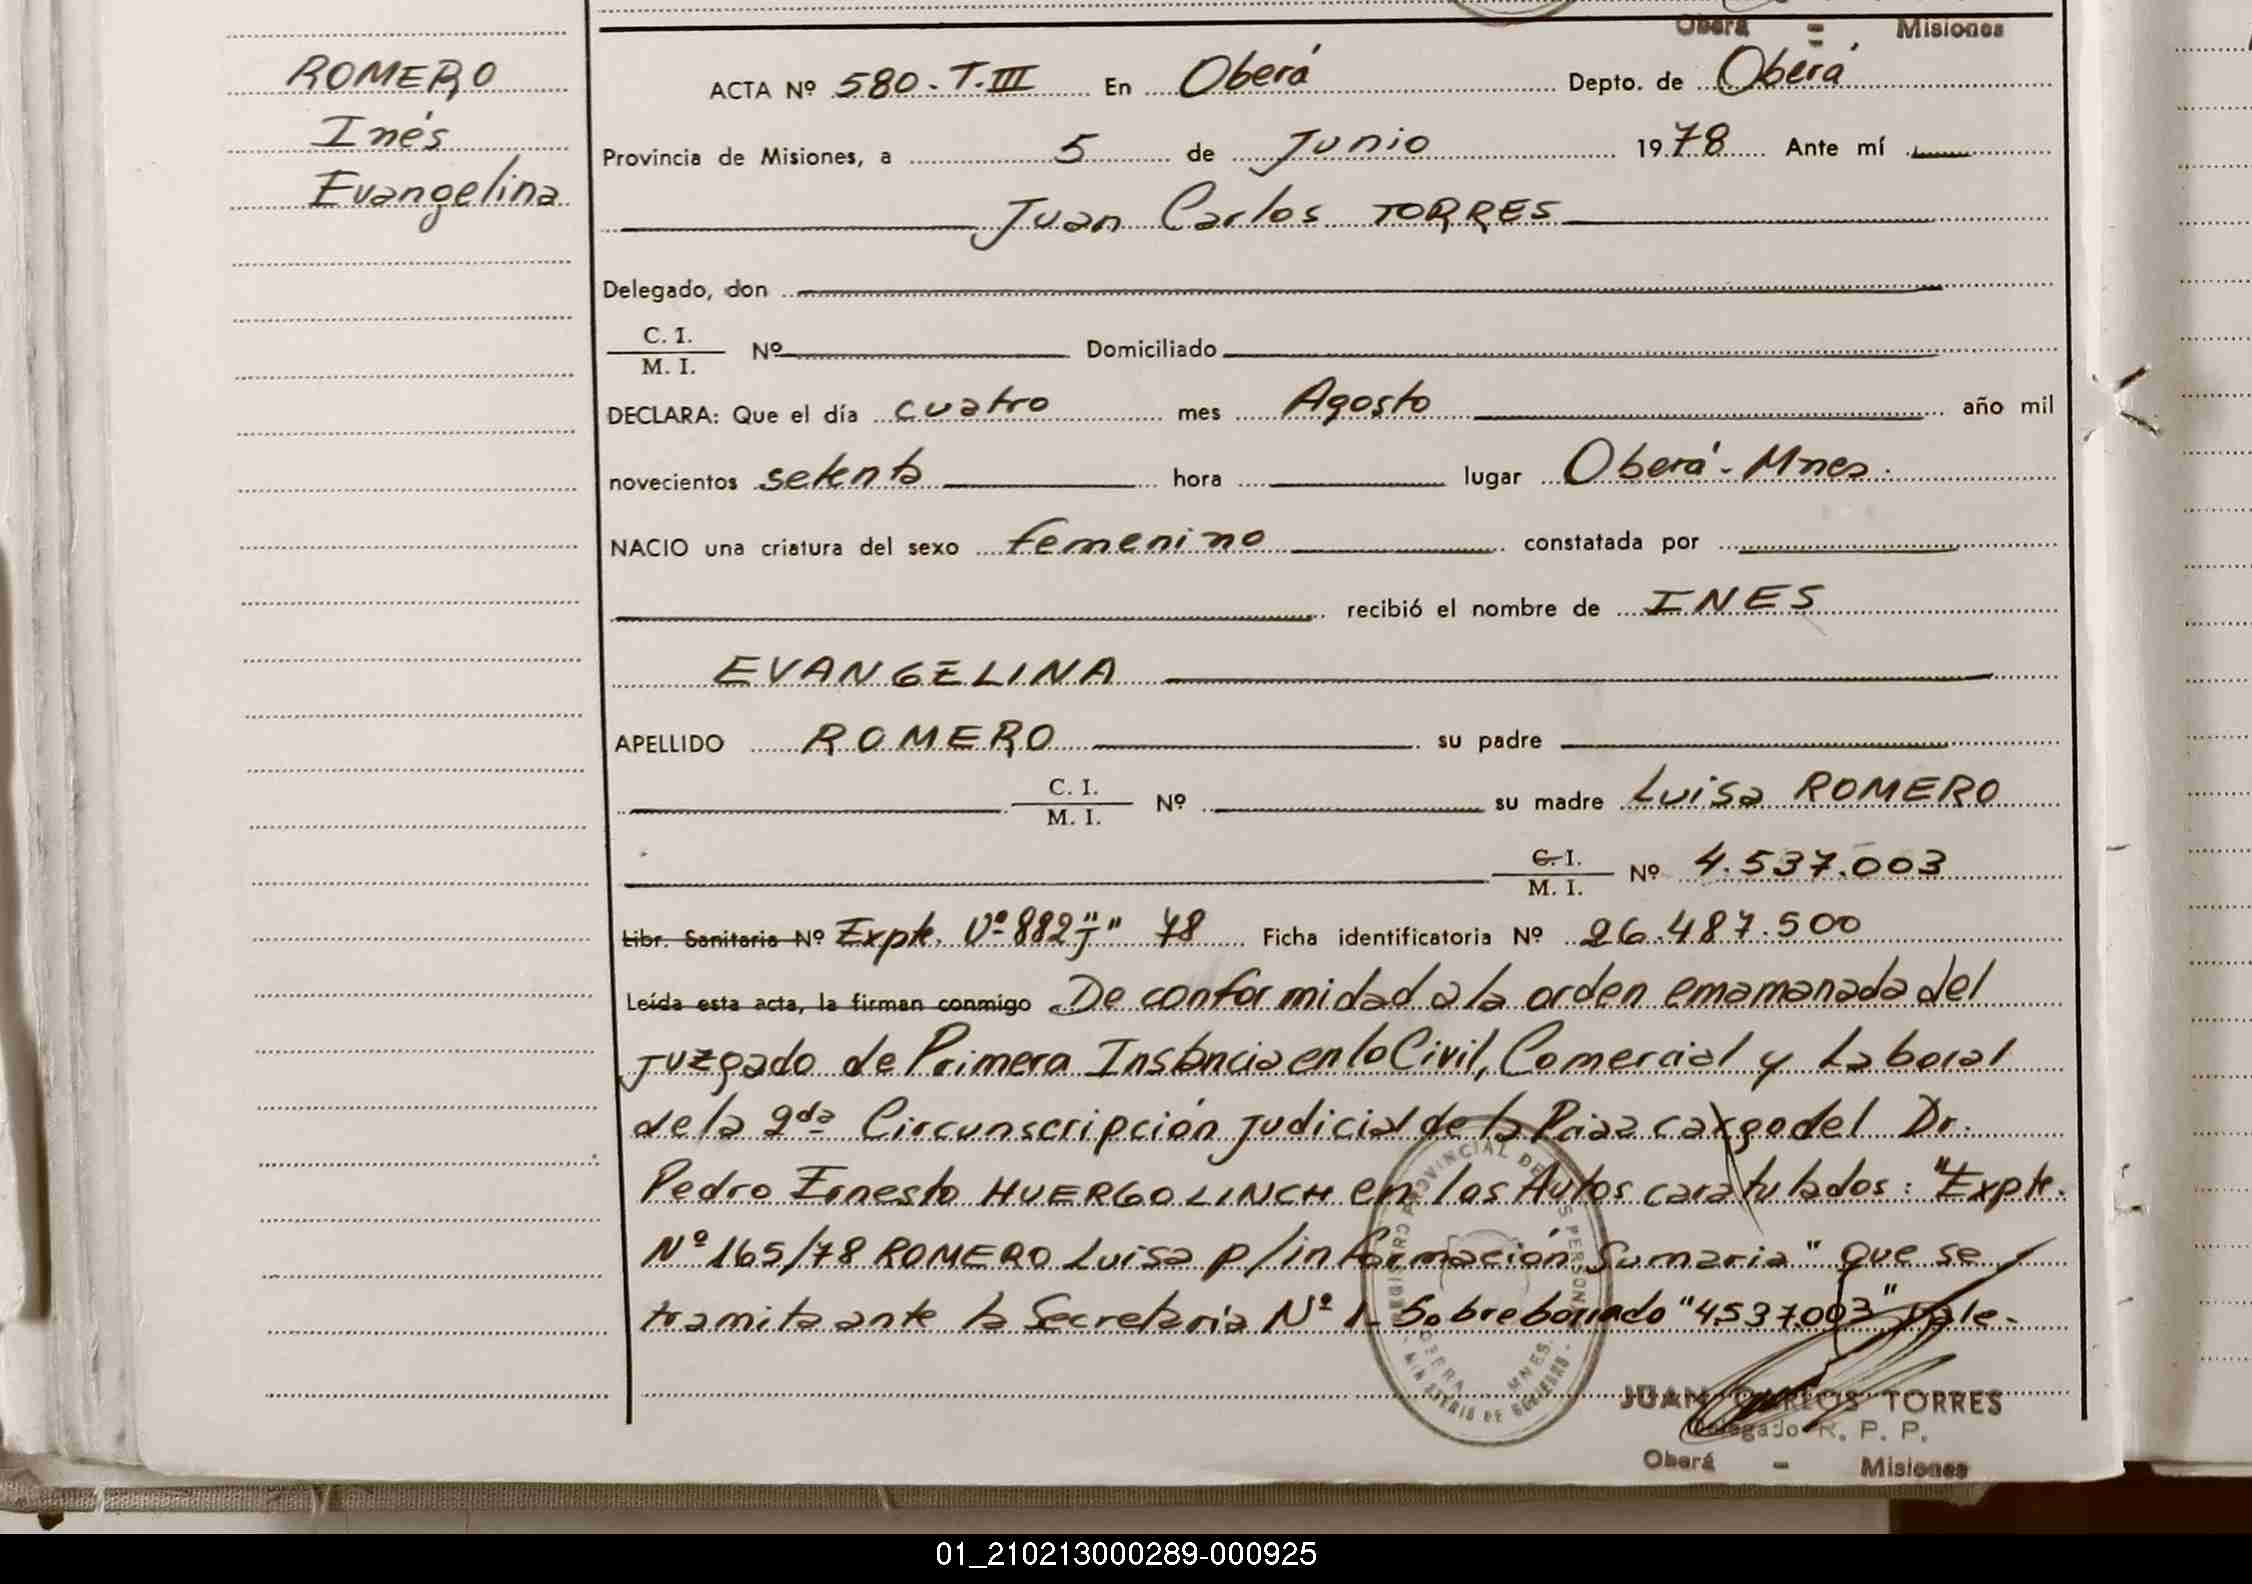 Oberá - Misiones
ROMERO
Inés
Evangelina
ACTA Nº 580-T.III En Oberá Depto. de Oberá
Provincia de Misiones, a 5 de Junio 1978 Ante mí
Juan Carlos TORRES
Delegado, don
C. I.
M. I.
Nº Domiciliado
DECLARA: Que el día cuatro mes Agosto año mil
novecientos setenta hora lugar Oberá-Mnes.
NACIO una criatura del sexo femenino constatada por
recibió el nombre de INES
EVANGELINA
APELLIDO ROMERO su padre
C. I.
M. I.
Nº su madre Luisa ROMERO
C. I.
M. I.
Nº 4.537.003
Libr. Sanitaria Nº Expte. Nº 882 "J" 78 Ficha identificatoria Nº 26.487.500
Leída esta acta, la firman conmigo De conformidad a la orden emamanada del
juzgado de Primera Instancia en lo Civil, Comercial y Laboral
de la 2da Circunscripción judicial de la Pcia a cargo del Dr.
Pedro Ernesto HUERGO LINCH en los Autos caratulados: "Expte.
Nº 165/78 ROMERO Luisa p/información Sumaria" que se
tramita ante la Secretaría Nº 1- Sobreborrado "4537.003" vale-
PROVINCIAL DE PERSONAS
MNES.
MINISTERIO DE GOBIERNO
JUAN CARLOS TORRES
Delegado R. P. P.
Oberá - Misiones
01_210213000289-000925